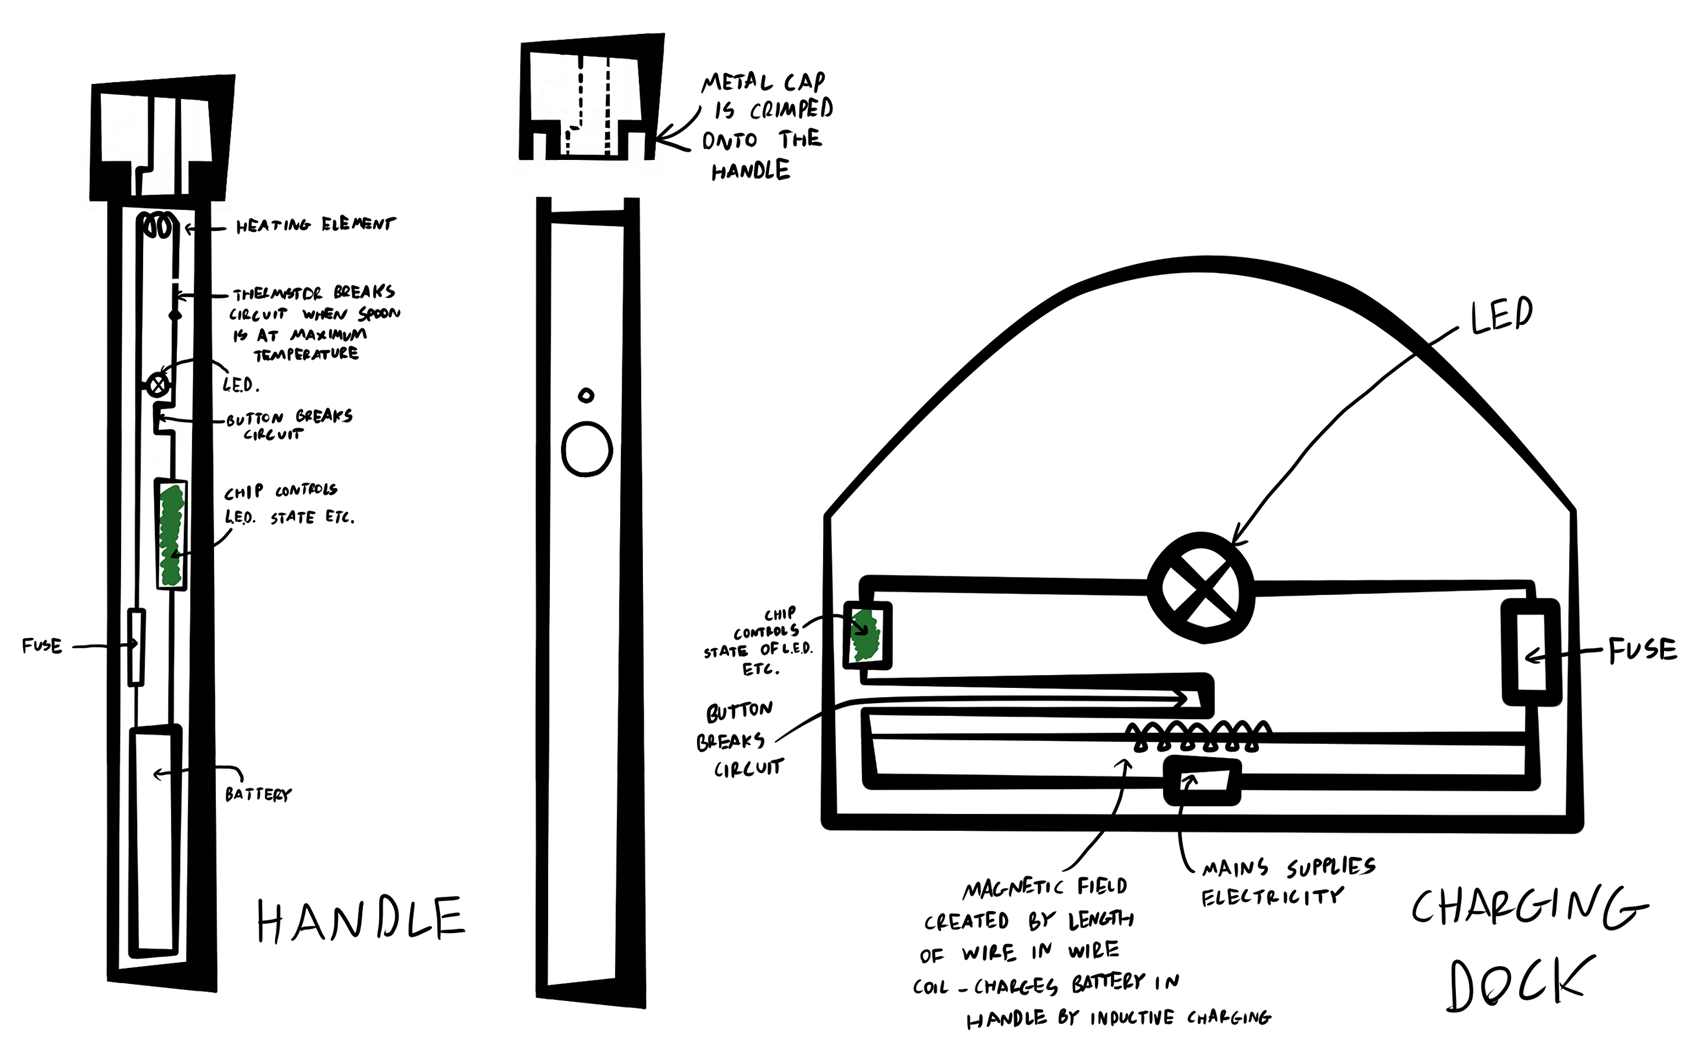 METAL CAP
IS CRIMPED
ONTO THE
HANDLE
HEATING ELEMENT
THERMSTOR BREAKS
CIRCUIT WHEN SPOON
IS AT MAXIMUM
TEMPERATURE
L.E.D.
BUTTON BREAKS
CIRCUIT
CHIP CONTROLS
L.E.D. STATE ETC.
FUSE
BATTERY
HANDLE
LED
CHIP
CONTROLS
STATE OF L.E.D.
ETC.
FUSE
BUTTON
BREAKS
CIRCUIT
MAGNETIC FIELD
CREATED BY LENGTH
OF WIRE IN WIRE
COIL - CHARGES BATTERY IN
HANDLE BY INDUCTIVE CHARGING
MAINS SUPPLIES
ELECTRICITY
CHARGING
DOCK